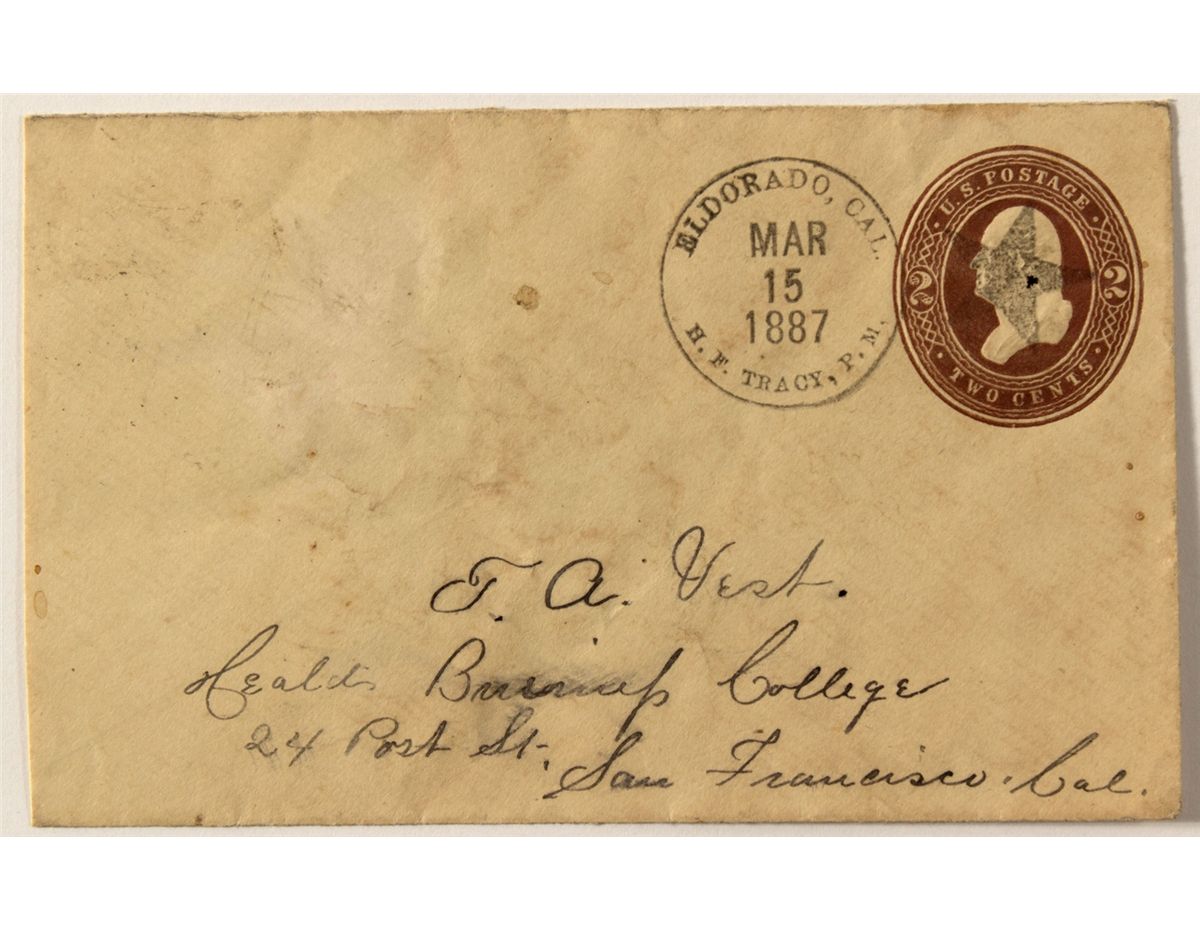 ELDORADO, CAL.
MAR
15
1887
H. F. TRACY, P. M.
U. S. POSTAGE
2 2
TWO CENTS
T. A. Vest.
Healds Business College
24 Post St.,
San Francisco. Cal.